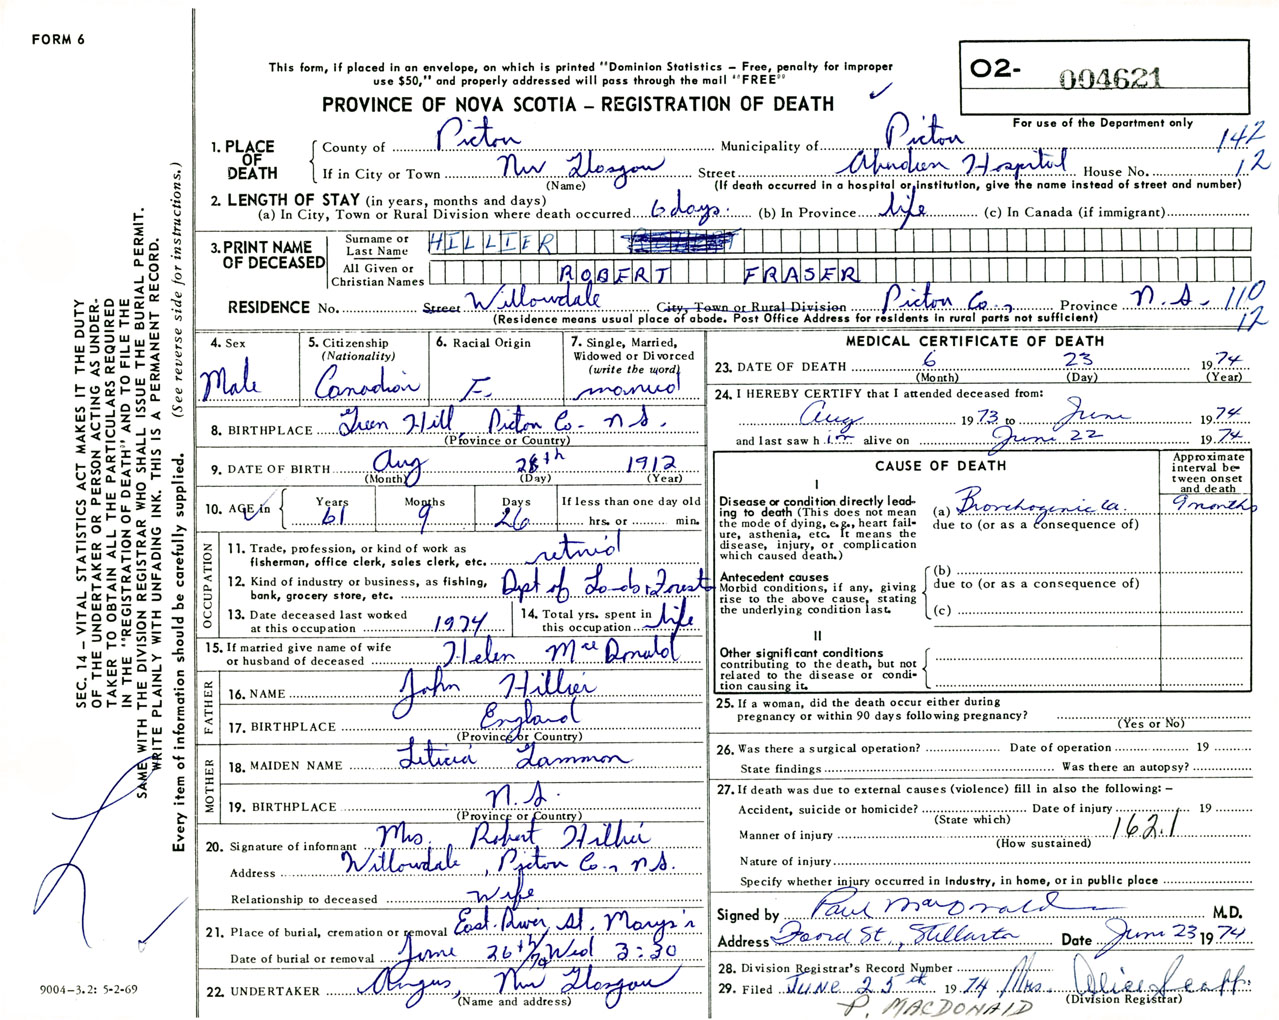 FORM 6
This form, if placed in an envelope, on which is printed "Dominion Statistics – Free, penalty for improper
use $50," and properly addressed will pass through the mail "FREE"
PROVINCE OF NOVA SCOTIA – REGISTRATION OF DEATH
O2- 004621
For use of the Department only
1. PLACE OF DEATH
County of Pictou Municipality of Pictou 142
If in City or Town New Glasgow Street Aberdeen Hospital House No. 12
(Name) (If death occurred in a hospital or institution, give the name instead of street and number)
2. LENGTH OF STAY (in years, months and days)
(a) In City, Town or Rural Division where death occurred 6 days. (b) In Province life (c) In Canada (if immigrant)
3. PRINT NAME OF DECEASED
Surname or Last Name HILLIER
All Given or Christian Names ROBERT FRASER
RESIDENCE No. Street Willowdale City, Town or Rural Division Pictou Co., Province N.S. 110
(Residence means usual place of abode. Post Office Address for residents in rural parts not sufficient) 12
4. Sex Male
5. Citizenship (Nationality) Canadian
6. Racial Origin E.
7. Single, Married, Widowed or Divorced (write the word) married
8. BIRTHPLACE Green Hill, Pictou Co. N.S.
(Province or Country)
9. DATE OF BIRTH Aug 28th 1912
(Month) (Day) (Year)
10. AGE in Years 61 Months 9 Days 26 If less than one day old
hrs. or min.
OCCUPATION
11. Trade, profession, or kind of work as
fisherman, office clerk, sales clerk, etc. retired
12. Kind of industry or business, as fishing,
bank, grocery store, etc. Dept of Lands & Forest
13. Date deceased last worked
at this occupation 1974
14. Total yrs. spent in
this occupation life
15. If married give name of wife
or husband of deceased Helen MacDonald
FATHER
16. NAME John Hillier
17. BIRTHPLACE England
(Province or Country)
MOTHER
18. MAIDEN NAME Leticia Lammon
19. BIRTHPLACE N.S.
(Province or Country)
20. Signature of informant Mrs. Robert Hillier
Address Willowdale, Pictou Co., N.S.
Relationship to deceased Wife
21. Place of burial, cremation or removal East River St. Mary's
Date of burial or removal June 26th/74 Wed 3:30
22. UNDERTAKER Angus, New Glasgow
(Name and address)
MEDICAL CERTIFICATE OF DEATH
23. DATE OF DEATH 6 23 1974
(Month) (Day) (Year)
24. I HEREBY CERTIFY that I attended deceased from:
Aug 1973 to June 1974
and last saw him alive on June 22 1974
CAUSE OF DEATH
Approximate interval between onset and death
I
Disease or condition directly lead-
ing to death (This does not mean
the mode of dying, e.g., heart fail-
ure, asthenia, etc. It means the
disease, injury, or complication
which caused death.)
(a) Bronchogenic Ca. 9 months
due to (or as a consequence of)
Antecedent causes
Morbid conditions, if any, giving
rise to the above cause, stating
the underlying condition last.
(b)
due to (or as a consequence of)
(c)
II
Other significant conditions
contributing to the death, but not
related to the disease or condi-
tion causing it.
25. If a woman, did the death occur either during
pregnancy or within 90 days following pregnancy?
(Yes or No)
26. Was there a surgical operation? Date of operation 19
State findings Was there an autopsy?
27. If death was due to external causes (violence) fill in also the following: –
Accident, suicide or homicide? Date of injury 19
(State which)
Manner of injury 162.1
(How sustained)
Nature of injury
Specify whether injury occurred in industry, in home, or in public place
Signed by Paul MacDonald M.D.
Address Foord St., Stellarton Date June 23 1974
28. Division Registrar's Record Number
29. Filed JUNE 25th 1974 Mrs. Alice
(Division Registrar)
P. MACDONALD
SEC. 14 – VITAL STATISTICS ACT MAKES IT THE DUTY
OF THE UNDERTAKER OR PERSON ACTING AS UNDER-
TAKER TO OBTAIN ALL THE PARTICULARS REQUIRED
IN THE "REGISTRATION OF DEATH" AND TO FILE THE
SAME WITH THE DIVISION REGISTRAR WHO SHALL ISSUE THE BURIAL PERMIT.
WRITE PLAINLY WITH UNFADING INK. THIS IS A PERMANENT RECORD.
Every item of information should be carefully supplied. (See reverse side for instructions.)
9004-3.2: 5-2-69